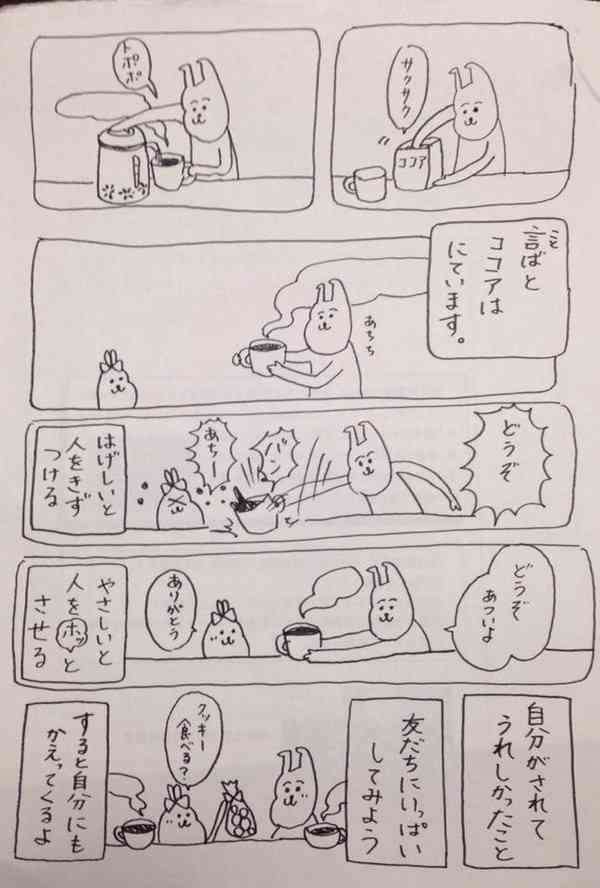 サクサク
ココア
トポポポ
こと
言ばと
ココアは
にています。
あちち
どうぞ
バンッ
あちー
はげしいと
人をきず
つける
どうぞ
あついよ
ありがとう
やさしいと
人をホッと
させる
自分がされて
うれしかったこと
友だちにいっぱい
してみよう
クッキー
食べる?
すると自分にも
かえってくるよ